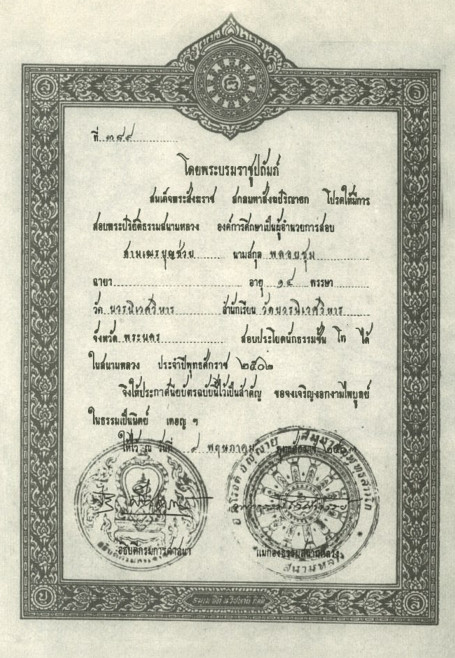 ที่ ๓๘๙
โดยพระบรมราชูปถัมภ์
สมเด็จพระสังฆราช สกลมหาสังฆปริณายก โปรดให้มีการ
สอบพระปริยัติธรรมสนามหลวง องค์การศึกษาเป็นผู้อำนวยการสอบ
สามเณรบุญช่วย นามสกุล พลอยชุม
ฉายา อายุ ๑๘ พรรษา
วัด บวรนิเวศวิหาร สำนักเรียน วัดบวรนิเวศวิหาร
จังหวัด พระนคร สอบประโยคนักธรรมชั้น โท ได้
ในสนามหลวง ประจำปีพุทธศักราช ๒๕๐๒
จึงให้ประกาศนียบัตรฉบับนี้ไว้เป็นสำคัญ ขอจงเจริญงอกงามไพบูลย์
ในธรรมเป็นนิตย์ เทอญ ฯ
ให้ไว้ ณ วันที่ ๙ พฤษภาคม พุทธศักราช
อธิบดีกรมการศาสนา แม่กองธรรมสนามหลวง
สนามหลวง